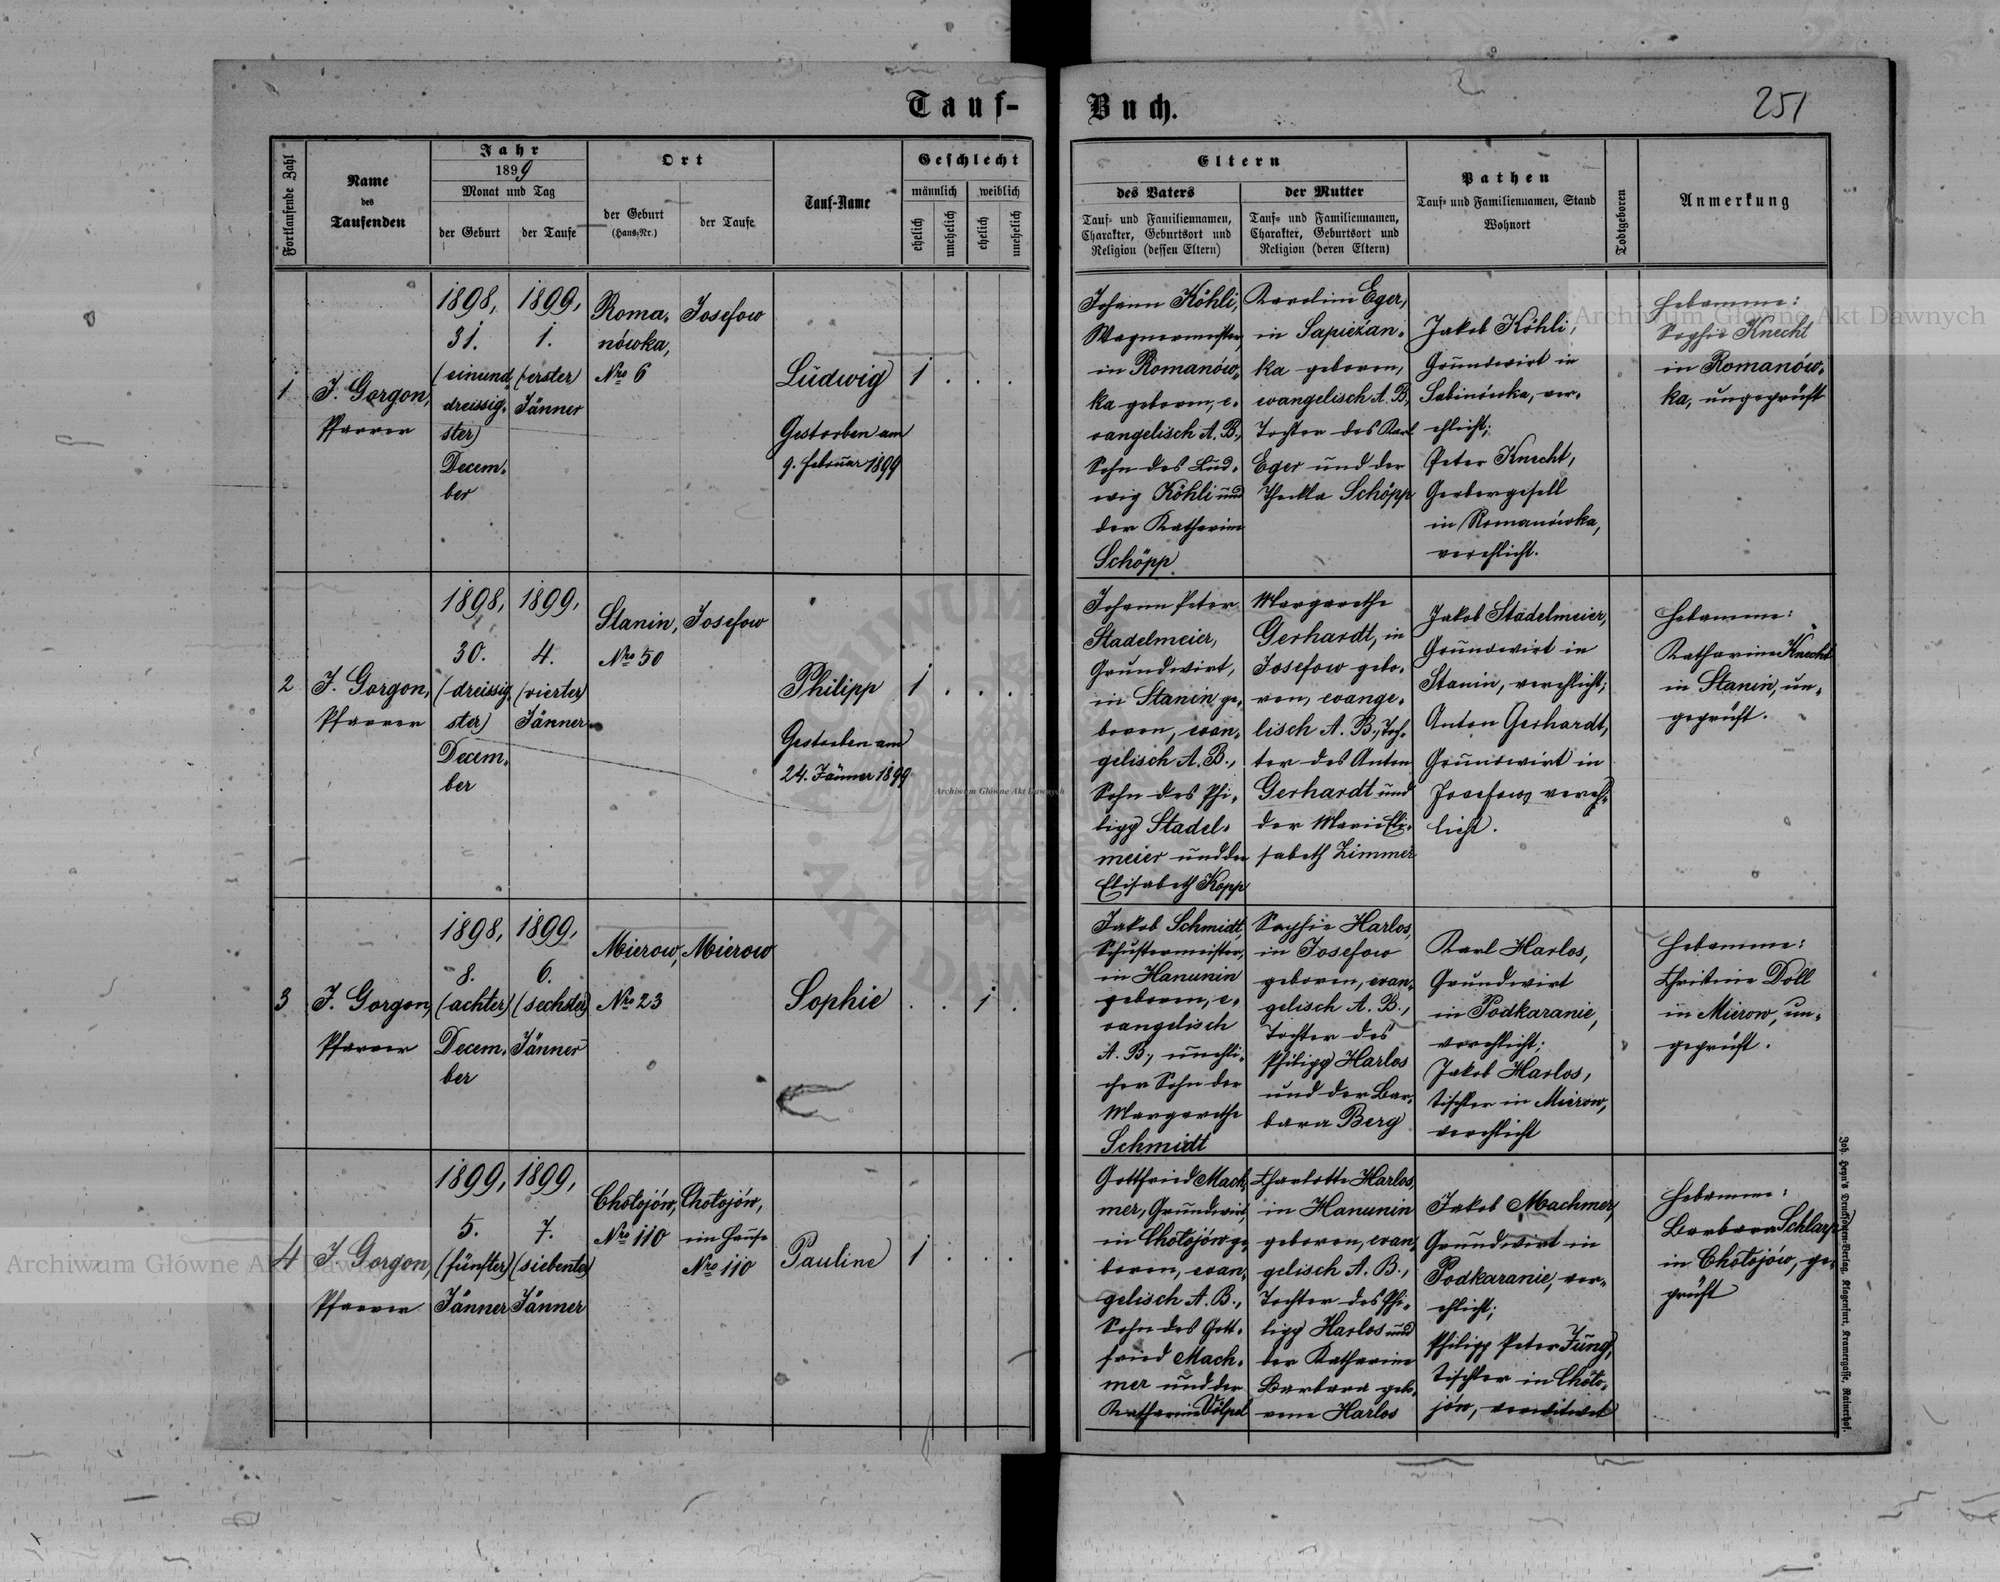 Tauf-
Buch.
251
Fortlaufende Zahl
Name
des
Taufenden
Jahr
1899
Monat und Tag
der Geburt
der Taufe
Ort
der Geburt
(Haus-Nr.)
der Taufe
Tauf-Name
Geschlecht
männlich
weiblich
ehelich
unehelich
ehelich
unehelich
Eltern
des Vaters
Tauf- und Familiennamen,
Charakter, Geburtsort und
Religion (dessen Eltern)
der Mutter
Tauf- und Familiennamen,
Charakter, Geburtsort und
Religion (deren Eltern)
Pathen
Tauf- und Familiennamen, Stand
Wohnort
Todtgeboren
Anmerkung
1
J. Gorgon,
Pfarrer
1898,
31.
(einund,
dreissig,
ster)
Decem,
ber
1899,
1.
(erster)
Jänner
Roma,
nówka,
Nro 6
Josefow
Ludwig
Gestorben am
9. Februar 1899
1 . . .
Johann Köhli,
Wagnermeister,
in Romanów,
ka geboren, e,
vangelisch A. B.,
Sohn des Lud,
wig Köhli und
der Katharine
Schöpp
Karolin Eger,
in Sapieżan,
ka geboren,
evangelisch A. B.,
Tochter des Karl
Eger und der
Thekla Schöpp
Jakob Köhli,
Grundwirt in
Sabinówka, ver,
ehlicht;
Peter Knecht,
Gerbergesell
in Romanówka,
verehlicht.
Hebamme:
Sophie Knecht
in Romanów,
ka, ungeprüft
2
J. Gorgon,
Pfarrer
1898,
30.
(dreissig,
ster)
Decem,
ber
1899,
4.
(vierter)
Jänner
Stanin,
Nro 50
Josefow
Philipp
Gestorben am
24. Jänner 1899
1 . . .
Johann Peter
Stadelmeier,
Grundwirt,
in Stanin ge,
boren, evan,
gelisch A. B.,
Sohn des Phi,
lipp Stadel,
meier und der
Elisabeth Köpp
Margarethe
Gerhardt, in
Josefow gebo,
ren, evange,
lisch A. B., Toch,
ter des Anton
Gerhardt und
der Marie Eli,
sabeth Zimmer
Jakob Stadelmeier,
Grundwirt in
Stanin, verehlicht;
Anton Gerhardt,
Grundwirt in
Josefow, vereh,
licht.
Hebamme:
Katharine Knecht
in Stanin, un,
geprüft.
3
J. Gorgon,
Pfarrer
1898,
8.
(achter)
Decem,
ber
1899,
6.
(sechster)
Jänner
Mierow,
Nro 23
Mierow
Sophie
. . 1 .
Jakob Schmidt,
Schustermeister,
in Hanunin
geboren, e,
vangelisch
A. B., unehli,
cher Sohn der
Margarethe
Schmidt
Sophie Harlos,
in Josefow
geboren, evan,
gelisch A. B.,
Tochter des
Philipp Harlos
und der Bar,
bara Berg
Karl Harlos,
Grundwirt
in Podkaranie,
verehlicht;
Jakob Harlos,
Tischler in Mierow,
verehlicht
Hebamme:
Christine Doll
in Mierow, un,
geprüft.
4
J. Gorgon,
Pfarrer
1899,
5.
(fünfter)
Jänner
1899,
7.
(siebenter)
Jänner
Chotojów,
Nro 110
Chotojów,
im Hause
Nro 110
Pauline
1 . . .
Gottfried Mach,
mer, Grundwirt,
in Chotojów ge,
boren, evan,
gelisch A. B.,
Sohn des Gott,
fried Mach,
mer und der
Katharine Völpel
Charlotte Harlos,
in Hanunin
geboren, evan,
gelisch A. B.,
Tochter des Phi,
lipp Harlos und
der Katharine
Barbara gebo,
rene Harlos
Jakob Machmer,
Grundwirt in
Podkaranie, ver,
ehlicht;
Philipp Peter Jung,
Tischler in Choto,
jów, verwitwet
Hebamme:
Barbara Schlarp
in Chotojów, ge,
prüft
Joh. Heyn's Drucksorten-Verlag, Klagenfurt, Kramergasse, Rainerhof.
Archiwum Główne Akt Dawnych
Archiwum Główne Akt Dawnych
Archiwum Główne Akt Dawnych